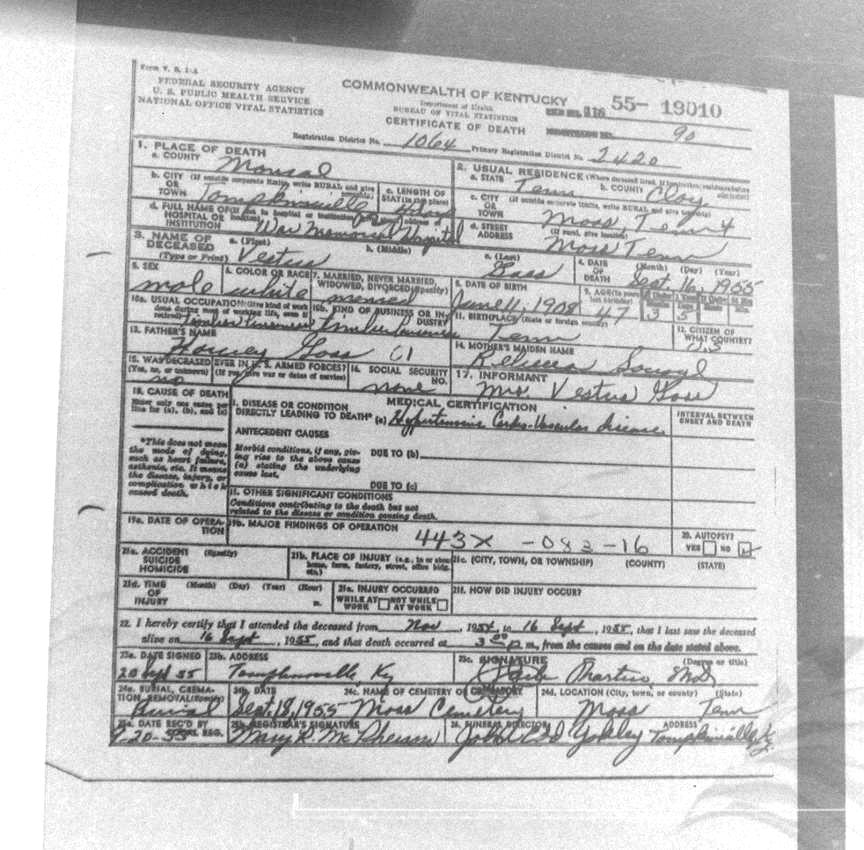 Form V. S. 1-A
FEDERAL SECURITY AGENCY
U. S. PUBLIC HEALTH SERVICE
NATIONAL OFFICE VITAL STATISTICS
COMMONWEALTH OF KENTUCKY
Department of Health
BUREAU OF VITAL STATISTICS
CERTIFICATE OF DEATH
116 55- 19010
90
Registration District No. 1064 Primary Registration District No. 2420
1. PLACE OF DEATH
a. COUNTY
2. USUAL RESIDENCE (Where deceased lived.
a. STATE Tenn b. COUNTY Clay
b. CITY (If outside corporate limits, write RURAL and give
OR
TOWN Tompkinsville
c. LENGTH OF
STAY (in this place)
c. CITY (If outside corporate limits, write RURAL and give
OR
TOWN Moss Tenn
d. FULL NAME OF (If not in hospital or institution, give street address
HOSPITAL OR
INSTITUTION War Memorial Hospital
d. STREET (If rural, give location)
ADDRESS Moss Tenn
3. NAME OF DECEASED
(Type or Print)
a. (First) Vestus b. (Middle) c. (Last) Goss
4. DATE OF DEATH (Month) (Day) (Year) Sept. 16, 1955
5. SEX male
6. COLOR OR RACE white
7. MARRIED, NEVER MARRIED, WIDOWED, DIVORCED (Specify) married
8. DATE OF BIRTH June 11, 1908
9. AGE (In years last birthday) 47 3 5
10a. USUAL OCCUPATION (Give kind of work done during most of working life, even if retired)
10b. KIND OF BUSINESS OR INDUSTRY
11. BIRTHPLACE (State or foreign country) Tenn
12. CITIZEN OF WHAT COUNTRY? U.S
13. FATHER'S NAME Goss
14. MOTHER'S MAIDEN NAME
15. WAS DECEASED EVER IN U. S. ARMED FORCES?
(Yes, no, or unknown) (If yes, give war or dates of service) no
16. SOCIAL SECURITY NO. none
17. INFORMANT Mrs. Vestus Goss
18. CAUSE OF DEATH
Enter only one cause per line for (a), (b), and (c)
MEDICAL CERTIFICATION
INTERVAL BETWEEN ONSET AND DEATH
I. DISEASE OR CONDITION
DIRECTLY LEADING TO DEATH* (a) Hypertensive Cardio-Vascular disease
ANTECEDENT CAUSES
*This does not mean the mode of dying, such as heart failure, asthenia, etc. It means the disease, injury, or complication which caused death.
Morbid conditions, if any, giving rise to the above cause (a) stating the underlying cause last.
DUE TO (b)
DUE TO (c)
II. OTHER SIGNIFICANT CONDITIONS
Conditions contributing to the death but not
related to the disease or condition causing death.
19a. DATE OF OPERATION
19b. MAJOR FINDINGS OF OPERATION
443X -083-16
20. AUTOPSY?
YES NO
21a. ACCIDENT SUICIDE HOMICIDE (Specify)
21b. PLACE OF INJURY (e.g., in or about home, farm, factory, street, office bldg. etc.)
21c. (CITY, TOWN, OR TOWNSHIP) (COUNTY) (STATE)
21d. TIME OF INJURY (Month) (Day) (Year) (Hour) m.
21e. INJURY OCCURRED
WHILE AT WORK NOT WHILE AT WORK
21f. HOW DID INJURY OCCUR?
22. I hereby certify that I attended the deceased from Nov , 1954, to 16 Sept , 1955, that I last saw the deceased
alive on 16 Sept , 1955, and that death occurred at 3 00 P m., from the causes and on the date stated above.
23a. DATE SIGNED 20 Sept 55
23b. ADDRESS Tompkinsville Ky
23c. SIGNATURE (Degree or title)
24a. BURIAL, CREMATION, REMOVAL (Specify) Burial
24b. DATE Sept. 18, 1955
24c. NAME OF CEMETERY OR CREMATORY Moss Cemetery
24d. LOCATION (City, town, or county) (State) Moss Tenn
25a. DATE REC'D BY LOCAL REG. 9-20-55
25b. REGISTRAR'S SIGNATURE Mary R. McPherson
26. FUNERAL DIRECTOR Yokley ADDRESS Tompkinsville Ky.